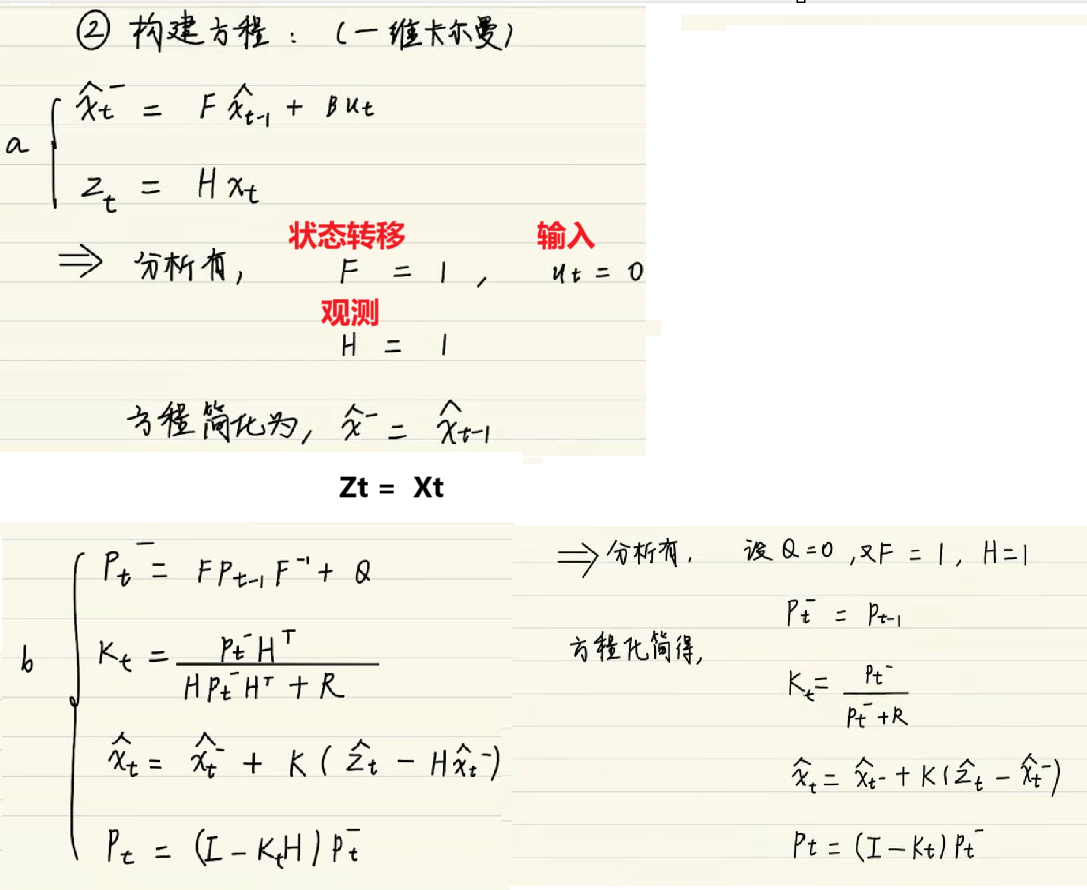 ② 构建方程：（一维卡尔曼）
a
x̂t⁻ = F x̂t-1 + But
zt = Hxt
⇒ 分析有，
状态转移
输入
F = 1，
ut = 0
观测
H = 1
方程简化为，x̂⁻ = x̂t-1
Zt = Xt
b
Pt⁻ = FPt-1F⁻¹ + Q
Kt = Pt⁻Hᵀ / HPt⁻Hᵀ + R
x̂t = x̂t⁻ + K(ẑt - Hx̂t⁻)
Pt = (I - KtH)Pt⁻
⇒ 分析有，设 Q=0，又F = 1，H=1
Pt⁻ = Pt-1
方程化简得，
Kt = Pt⁻ / Pt⁻+R
x̂t = x̂t⁻ + K(ẑt - x̂t⁻)
Pt = (I - Kt)Pt⁻